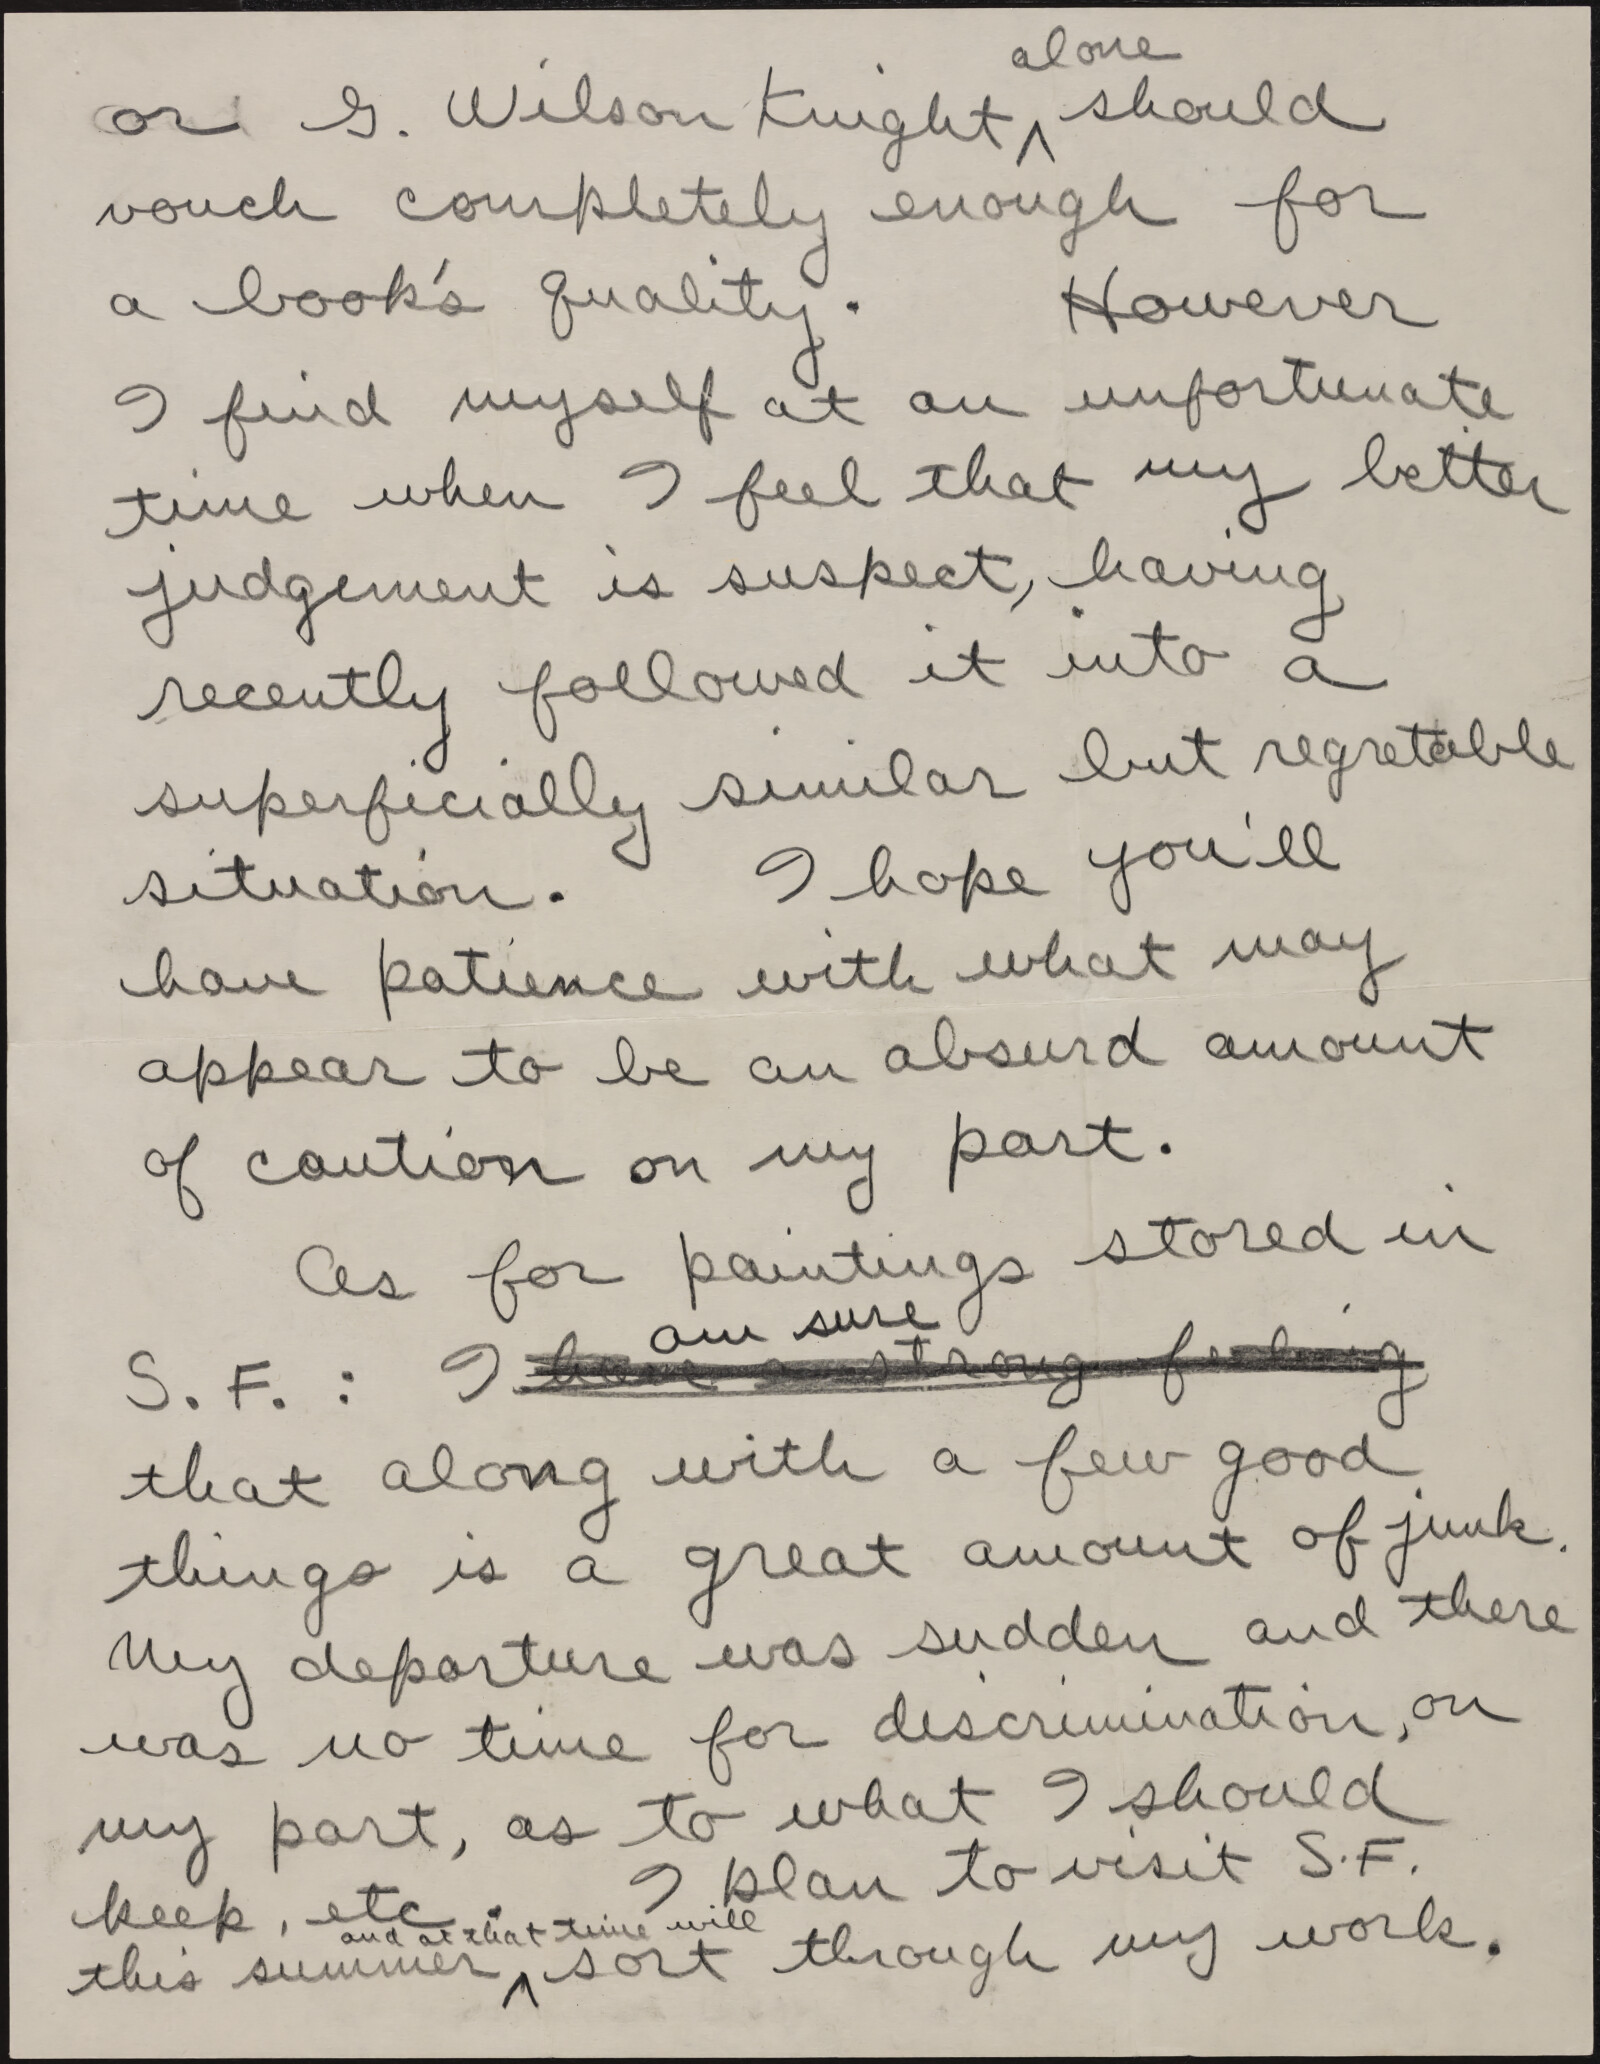 alone
or G. Wilson Knight ^ should
vouch completely enough for
a book's quality. However
I find myself at an unfortunate
time when I feel that my better
judgement is suspect, having
recently followed it into a
superficially similar but regretable
situation. I hope you'll
have patience with what may
appear to be an absurd amount
of caution on my part.
As for paintings stored in
am sure
S. F. : I have a strong feeling
that along with a few good
things is a great amount of junk.
My departure was sudden and there
was no time for discrimination, on
my part, as to what I should
keep, etc. I plan to visit S.F.
and at that time will
this summer ^ sort through my work.